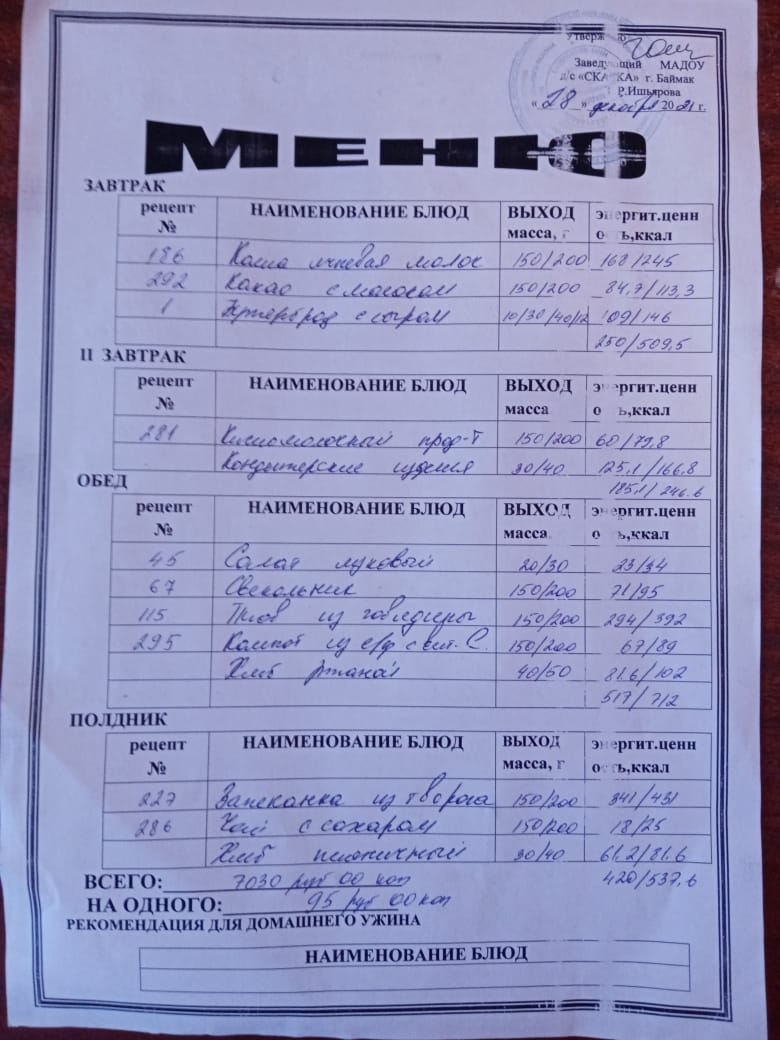 Утверж
Заведующий МАДОУ
д/с «СКАЗКА» г. Баймак
Р.Ишьярова
« 28 » декабря 2021 г.
МЕНЮ
ЗАВТРАК
рецепт № НАИМЕНОВАНИЕ БЛЮД ВЫХОД масса, г энергит.ценн ость,ккал
186 Каша ячневая молоч 150/200 168/245
292 Какао с молоком 150/200 84,7/113,3
1 Бутерброд с сыром 10/30/40/12 109/146
250/509,5
II ЗАВТРАК
рецепт № НАИМЕНОВАНИЕ БЛЮД ВЫХОД масса энергит.ценн ость,ккал
281 Кисломолочный прод-т 150/200 60/79,8
Кондитерские изделия 30/40 125,1/166,8
185,1/246.6
ОБЕД
рецепт № НАИМЕНОВАНИЕ БЛЮД ВЫХОД масса энергит.ценн ость,ккал
45 Салат луковый 20/30 23/34
67 Свекольник 150/200 71/95
115 Плов из говядины 150/200 294/392
295 Компот из с/ф с вит. С. 150/200 67/89
Хлеб ржаной 40/50 81.6/102
517/712
ПОЛДНИК
рецепт № НАИМЕНОВАНИЕ БЛЮД ВЫХОД масса, г энергит.ценн ость,ккал
227 Запеканка из творога 150/200 341/431
286 Чай с сахаром 150/200 18/25
Хлеб пшеничный 30/40 61.2/81.6
420/537,6
ВСЕГО: 7030 руб 00 коп
НА ОДНОГО: 95 руб 00 коп
РЕКОМЕНДАЦИЯ ДЛЯ ДОМАШНЕГО УЖИНА
НАИМЕНОВАНИЕ БЛЮД